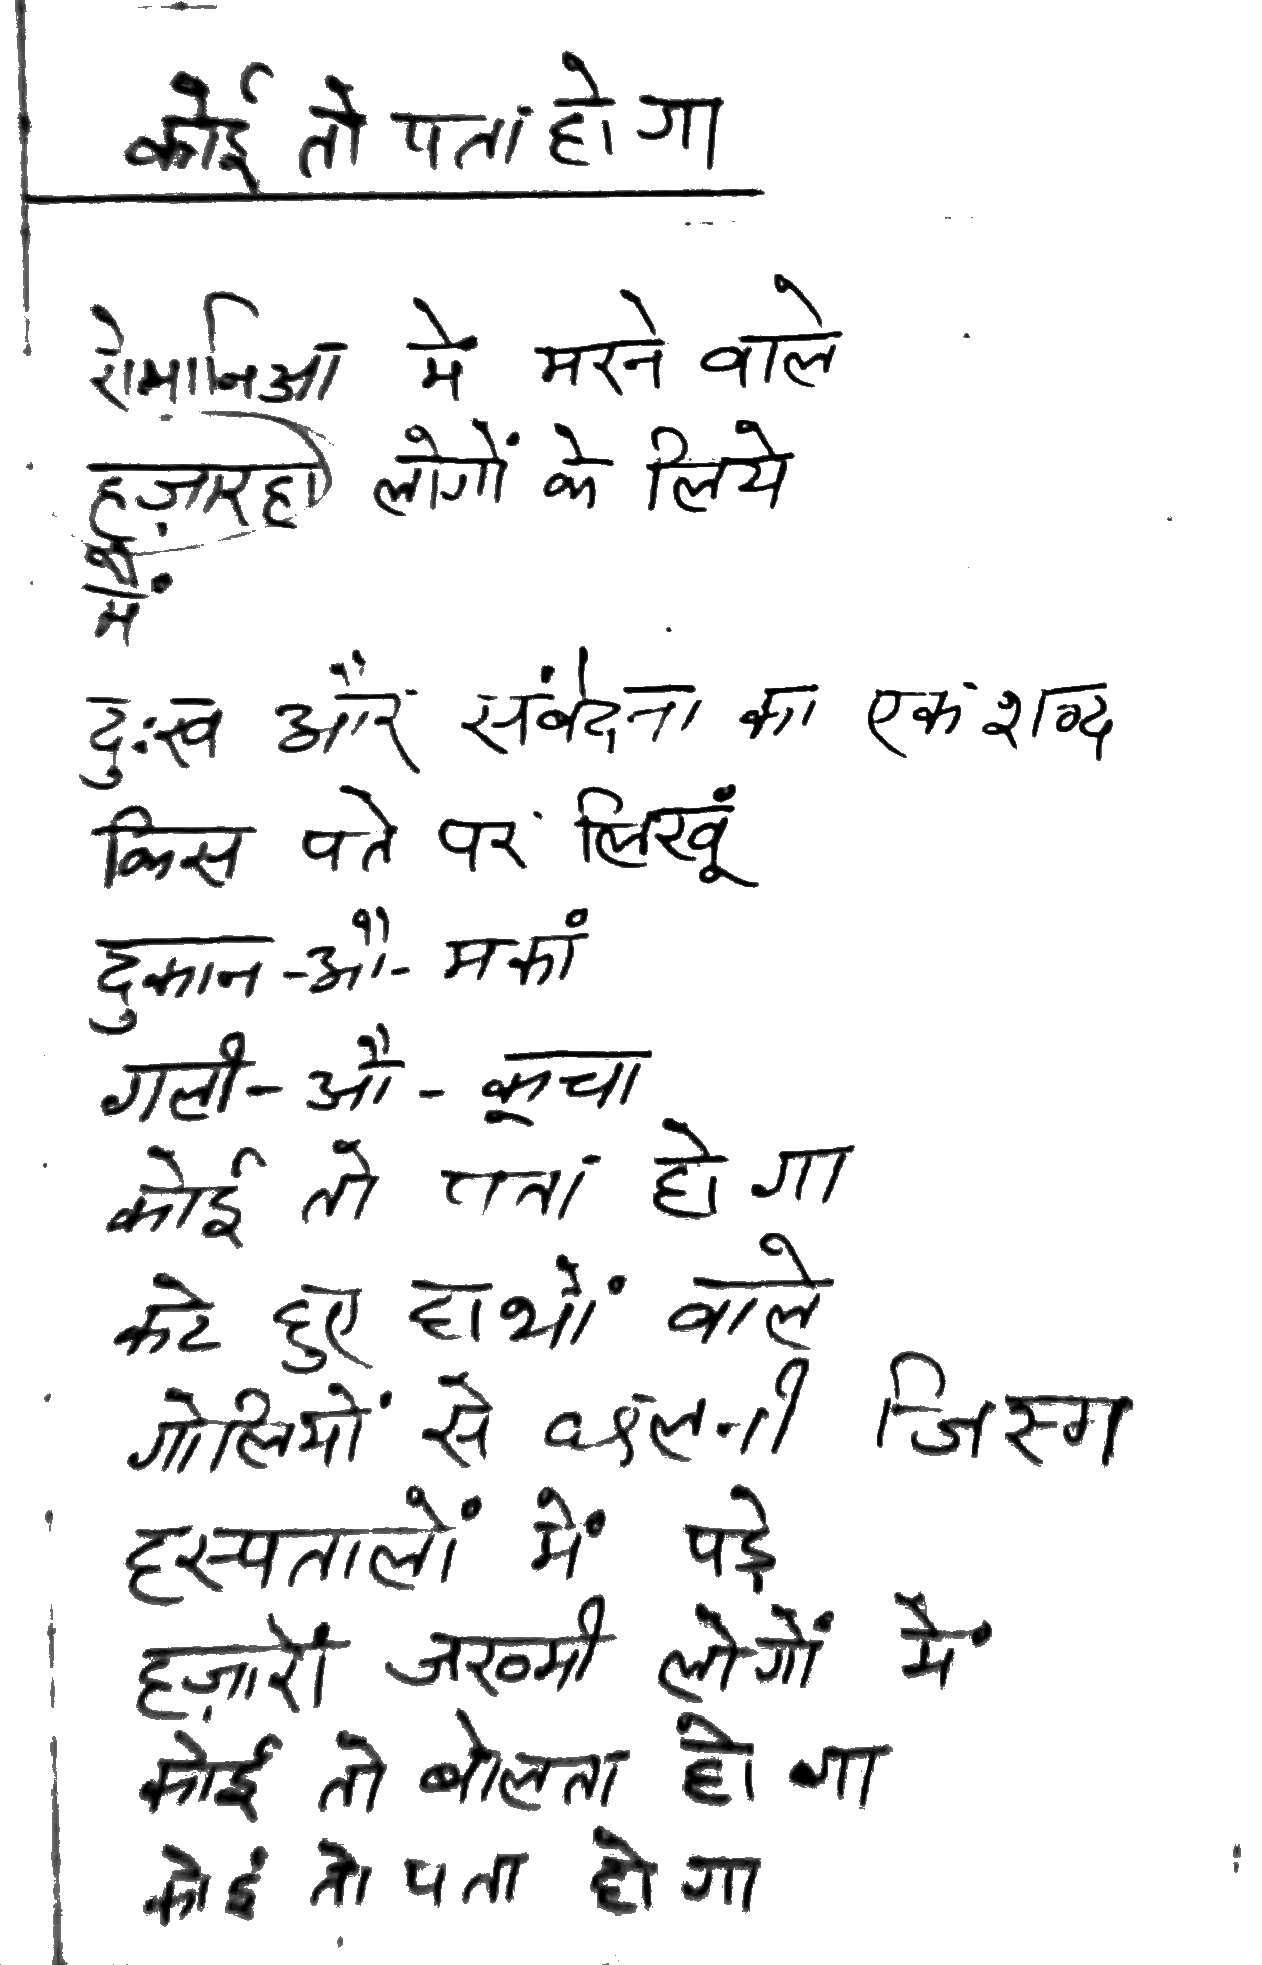 कोई तो पता होगा
रोमानिआ में मरने वाले
हज़ारहा लोगों के लिये
मैं
दुःख और संवेदना का एक शब्द
किस पते पर लिखूं
दुकान-औ-मकां
गली-औ-कूचा
कोई तो पता होगा
कटे हुए हाथों वाले
गोलियों से छलनी जिस्म
हस्पतालों में पड़े
हज़ारों जख्मी लोगों में
कोई तो बोलता होगा
कोई तो पता होगा